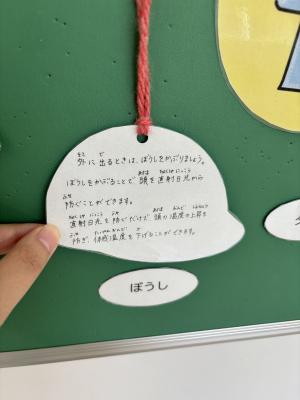 外に 出るときは、ぼうしをかぶりましょう。
ぼうしをかぶることで 頭を 直射日光から
防ぐことができます。
直射日光を 防ぐだけで 頭の 温度の 上昇を
防ぎ、体感温度を 下げることができます。
ぼうし